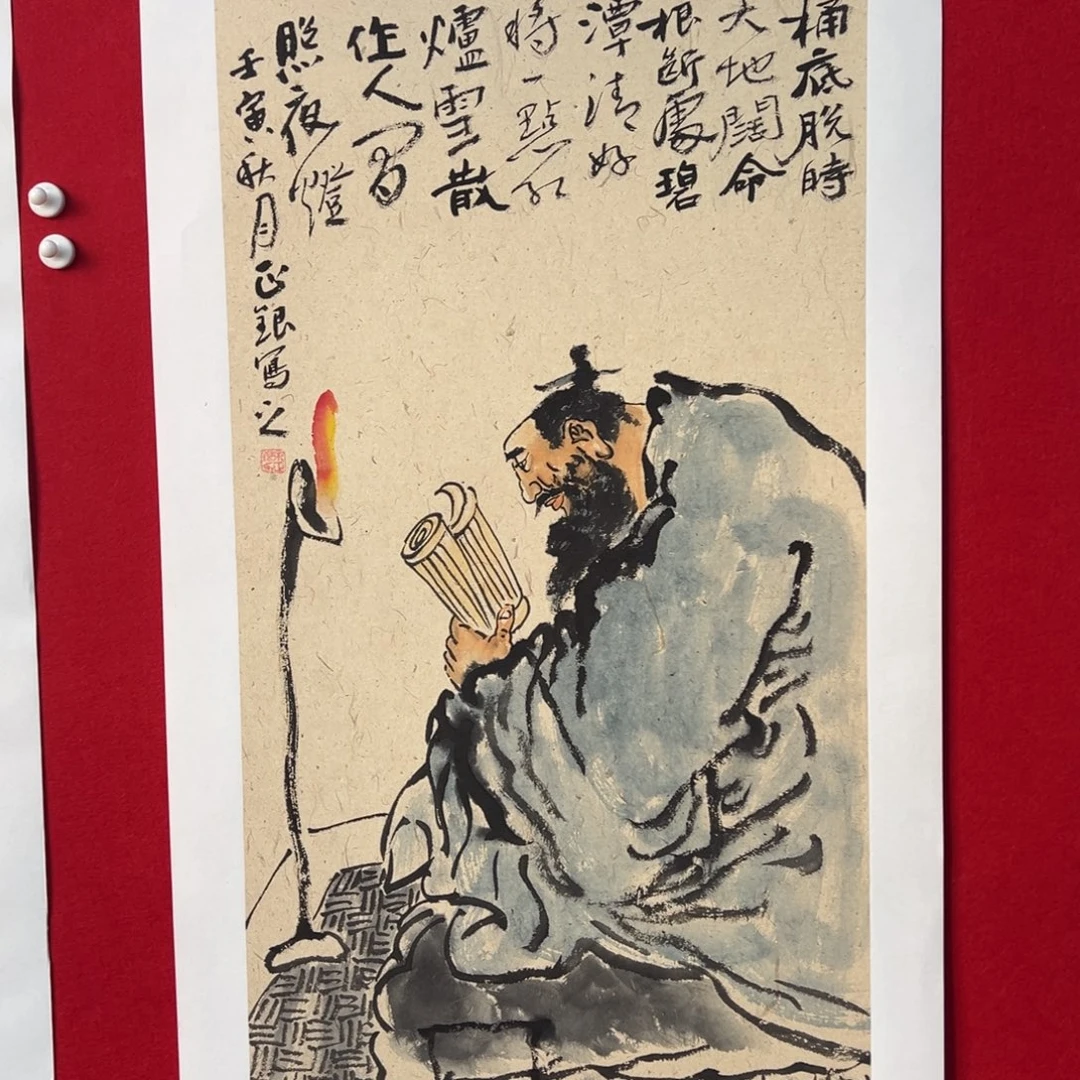 桶底脱時
大地闊命
根斷處碧
潭清好
將一點紅
爐雪散
作人間
照夜燈
壬寅秋月正銀寫之